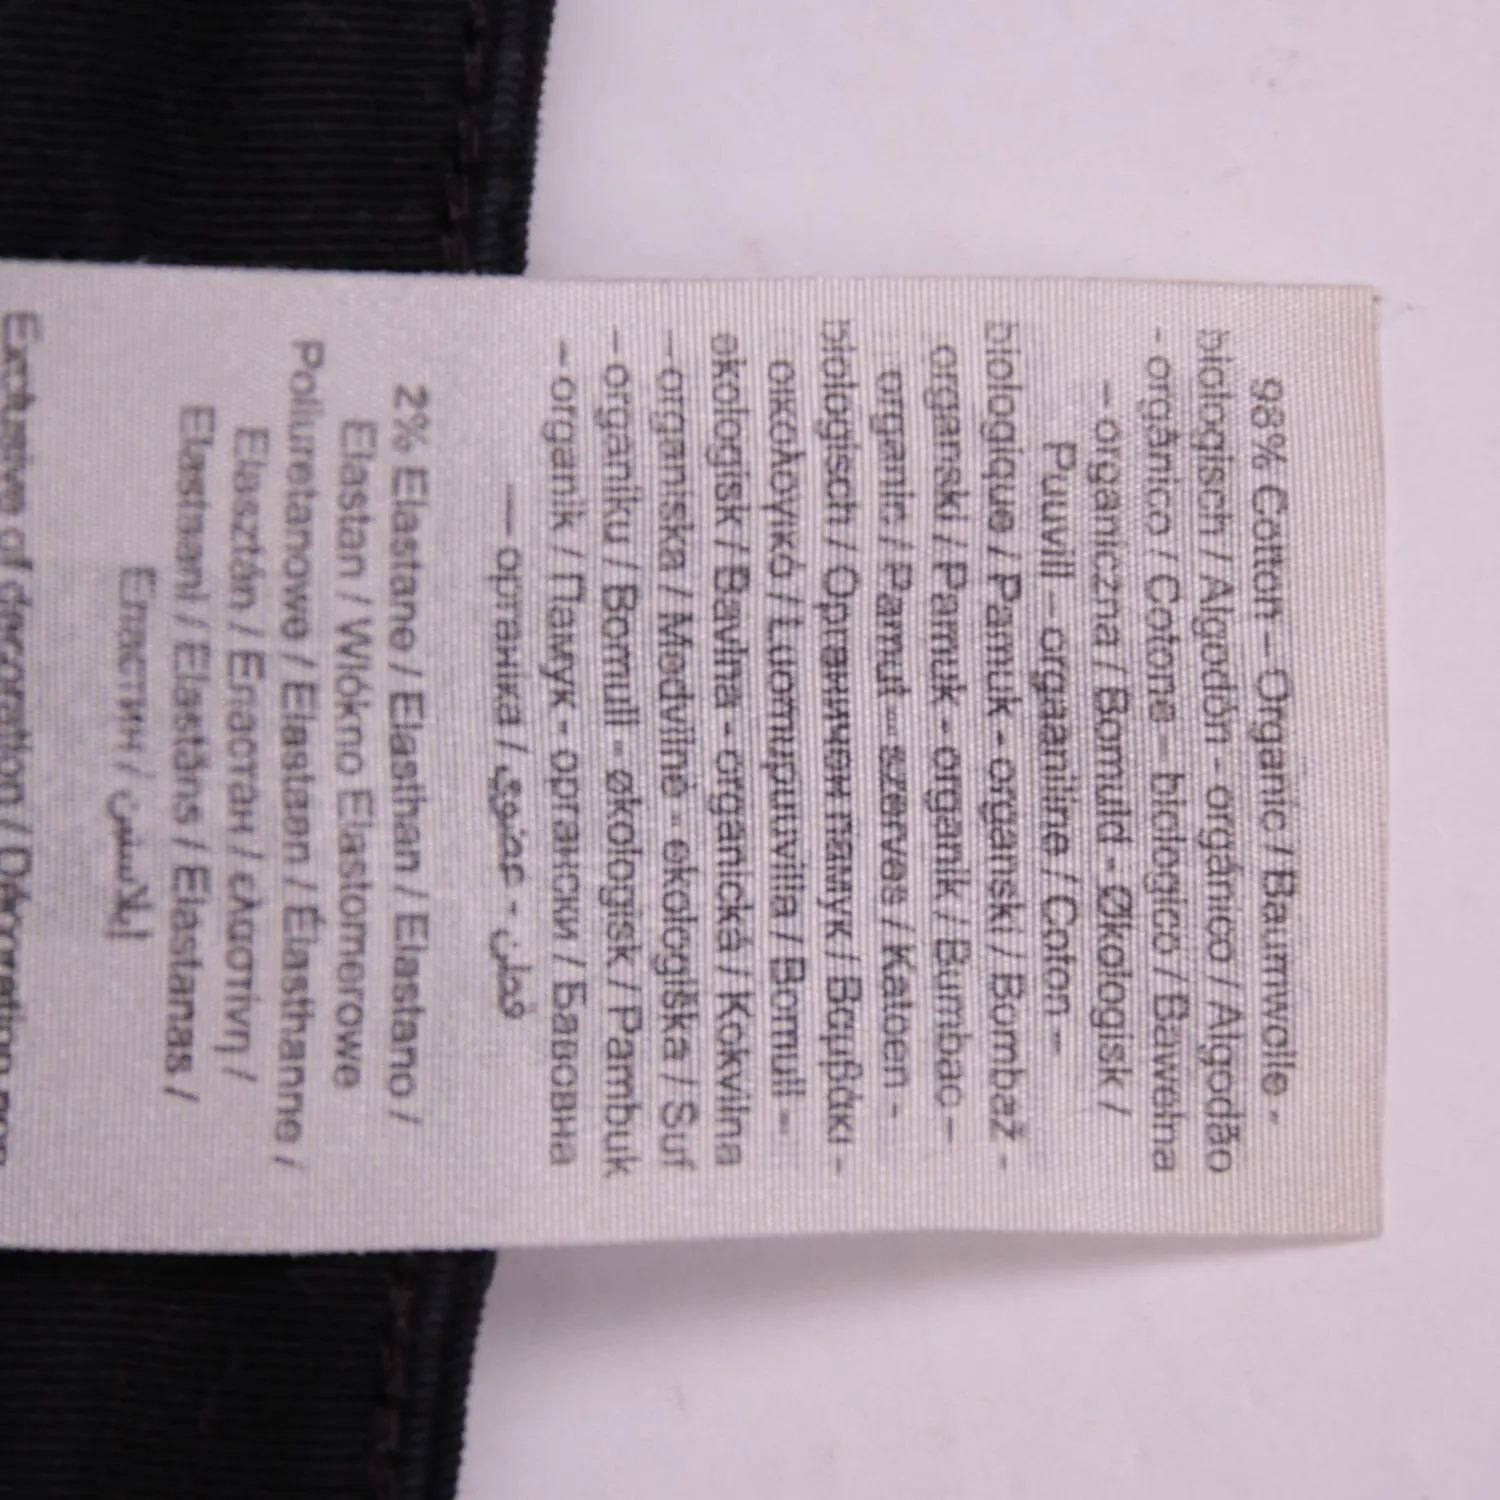 98% Cotton – Organic / Baumwolle -
biologisch / Algodón - orgánico / Algodão
- orgânico / Cotone – biologico / Bawełna
– organiczna / Bomuld - Økologisk /
Puuvill – orgaaniline / Coton –
biologique / Pamuk - organski / Bombaž -
organski / Pamuk - organik / Bumbac –
organic / Pamut – szerves / Katoen -
biologisch / Органичен памук / Βαμβάκι -
οικολογικό / Luomupuuvilla / Bomull –
ekologisk / Bavlna - organická / Kokvilna
– organiska / Medvilnė - ekologiška / Suf
– organiku / Bomull - økologisk / Pambuk
– organik / Памук - органски / Бавовна
— органіка / قطن - عضوي
2% Elastane / Elasthan / Elastano /
Elastan / Włókno Elastomerowe
Poliuretanowe / Elastaan / Élasthanne /
Elasztán / Еластан / ελαστίνη /
Elastaani / Elastāns / Elastanas /
Еластин / إيلاستين
Exclusive of decoration /